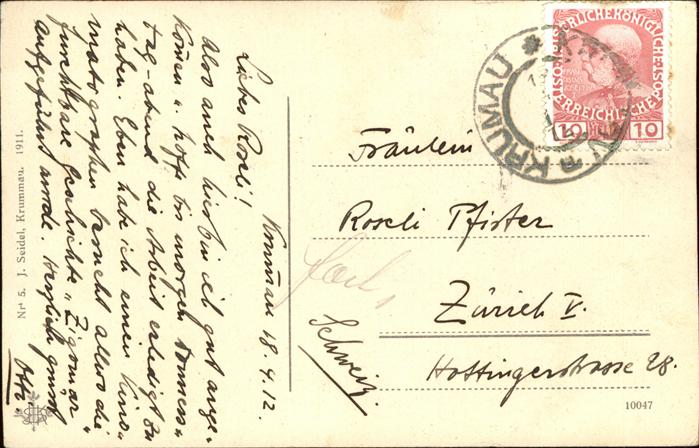 Krummau 18.4.12.
Liebes Roseli!
Also auch hier bin ich gut ange-
kommen u. hoffe bis morgen Donners-
tag-abend die Arbeit erledigt zu
haben. Eben habe ich einen Kino-
matographen besucht allwo die
furchtbare Geschichte „Zigomar"
aufgeführt wurde. Herzlich grüsst
Otto.
Nr. 5. J. Seidel, Krummau. 1911.
KAISERLICHE KÖNIGLICHE
ÖSTERREICHISCHE POST
10 10
KRUMAU
Fräulein
Roseli Pfister
Zürich V.
Hottingerstrasse 28.
Schweiz.
10047